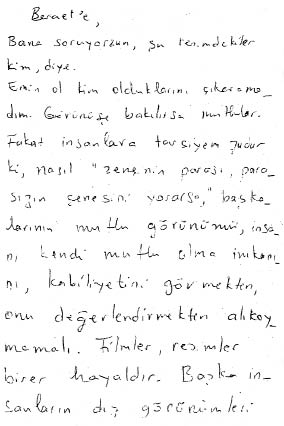 Beraet'e,
Bana soruyorsun, şu resimdekiler
kim, diye.
Emin ol kim olduklarını çıkarama_
dım. Görünüşe bakılırsa mutlular.
Fakat insanlara tavsiyem şudur
ki, nasıl "zenginin parası, para_
sızın çenesini yorarsa," başka_
larının mutlu görünümü, insa_
nı kendi mutlu olma imkanı_
nı, kabiliyetini görmekten,
onu değerlendirmekten alıkoy_
mamalı. Filmler, resimler
birer hayaldır. Başka in_
sanların dış görünümleri